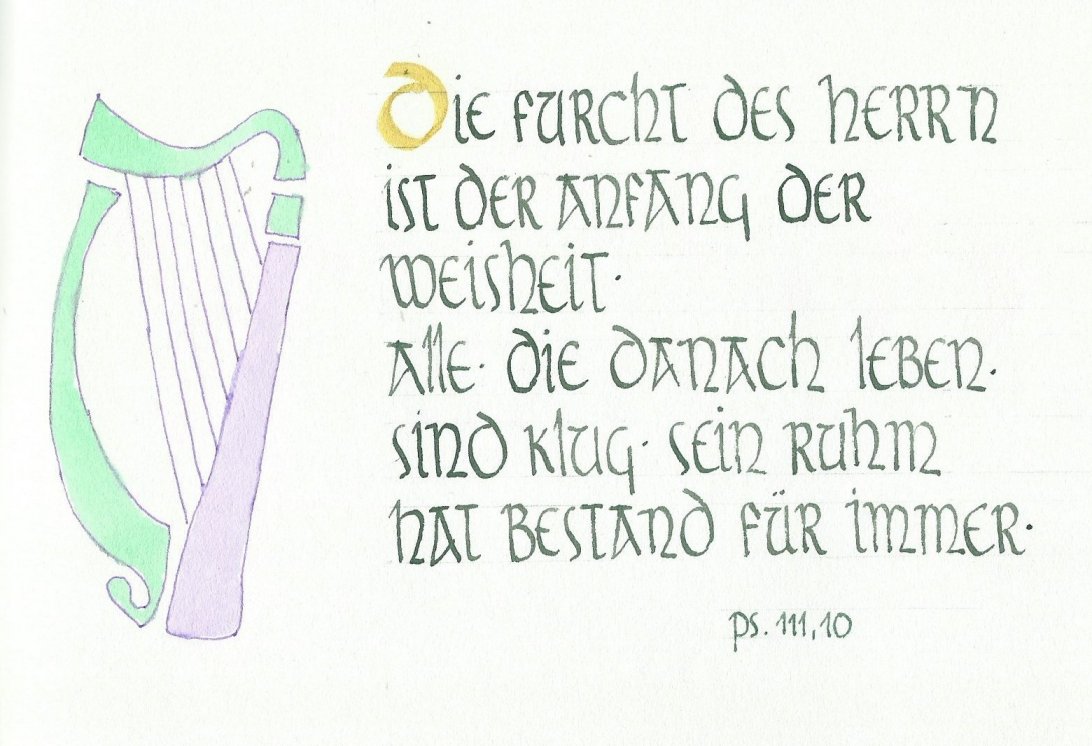 Die Furcht des Herrn
ist der Anfang der
Weisheit·
Alle· die danach leben·
sind klug· sein Ruhm
hat Bestand für immer·
Ps. 111,10